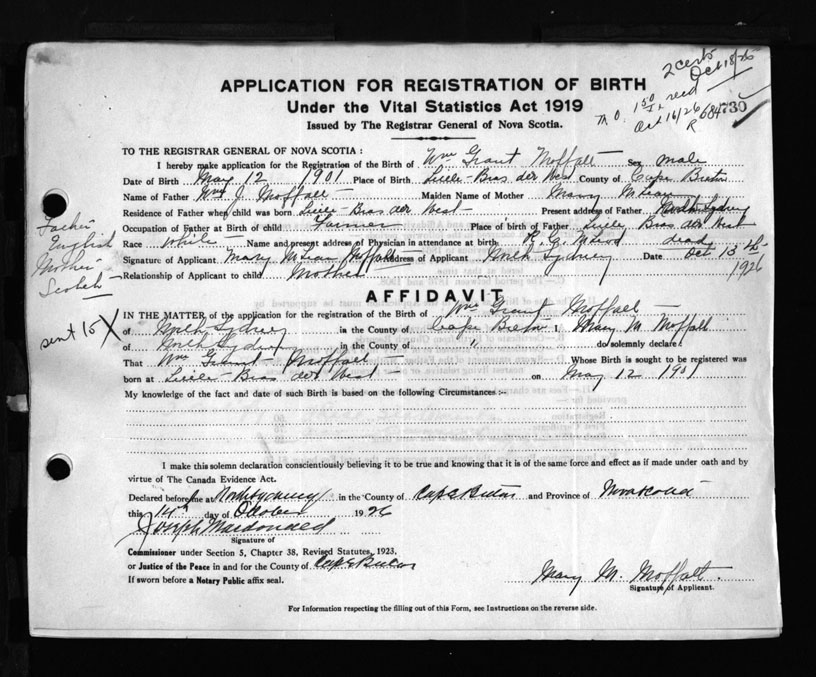 2 certs
Oct 18/26
APPLICATION FOR REGISTRATION OF BIRTH
Under the Vital Statistics Act 1919
Issued by The Registrar General of Nova Scotia.
M.O. 1 50 recd
Oct 16/26
R 684730
TO THE REGISTRAR GENERAL OF NOVA SCOTIA :
I hereby make application for the Registration of the Birth of Wm Grant Moffatt Sex male
Date of Birth May 12 1901 Place of Birth Little Bras der West County of Cape Breton
Name of Father Wm J. Moffatt Maiden Name of Mother Mary McLean
Residence of Father when child was born Little Bras der West Present address of Father North Sydney
Occupation of Father at Birth of child Farmer Place of birth of Father Little Bras der West
Race White Name and present address of Physician in attendance at birth dead
Signature of Applicant Mary McLean Moffatt Address of Applicant North Sydney Date Oct 13th
1926
Relationship of Applicant to child Mother
Father English
Mother Scotch
AFFIDAVIT
sent 15 X
IN THE MATTER of the application for the registration of the Birth of Wm Grant Moffatt
of North Sydney in the County of Cape Breton I, Mary M. Moffatt
of North Sydney in the County of " do solemnly declare :
That Wm Grant Moffatt Whose Birth is sought to be registered was
born at Little Bras der West on May 12 1901
My knowledge of the fact and date of such Birth is based on the following Circumstances :-
I make this solemn declaration conscientiously believing it to be true and knowing that it is of the same force and effect as if made under oath and by
virtue of The Canada Evidence Act.
Declared before me at North Sydney in the County of Cape Breton and Province of Nova Scotia
this 14th day of October 1926
Joseph Macdonald
Signature of
Commissioner under Section 5, Chapter 38, Revised Statutes, 1923.
or Justice of the Peace in and for the County of Cape Breton
If sworn before a Notary Public affix seal.
Mary M. Moffatt.
Signature of Applicant.
For Information respecting the filling out of this Form, see Instructions on the reverse side.